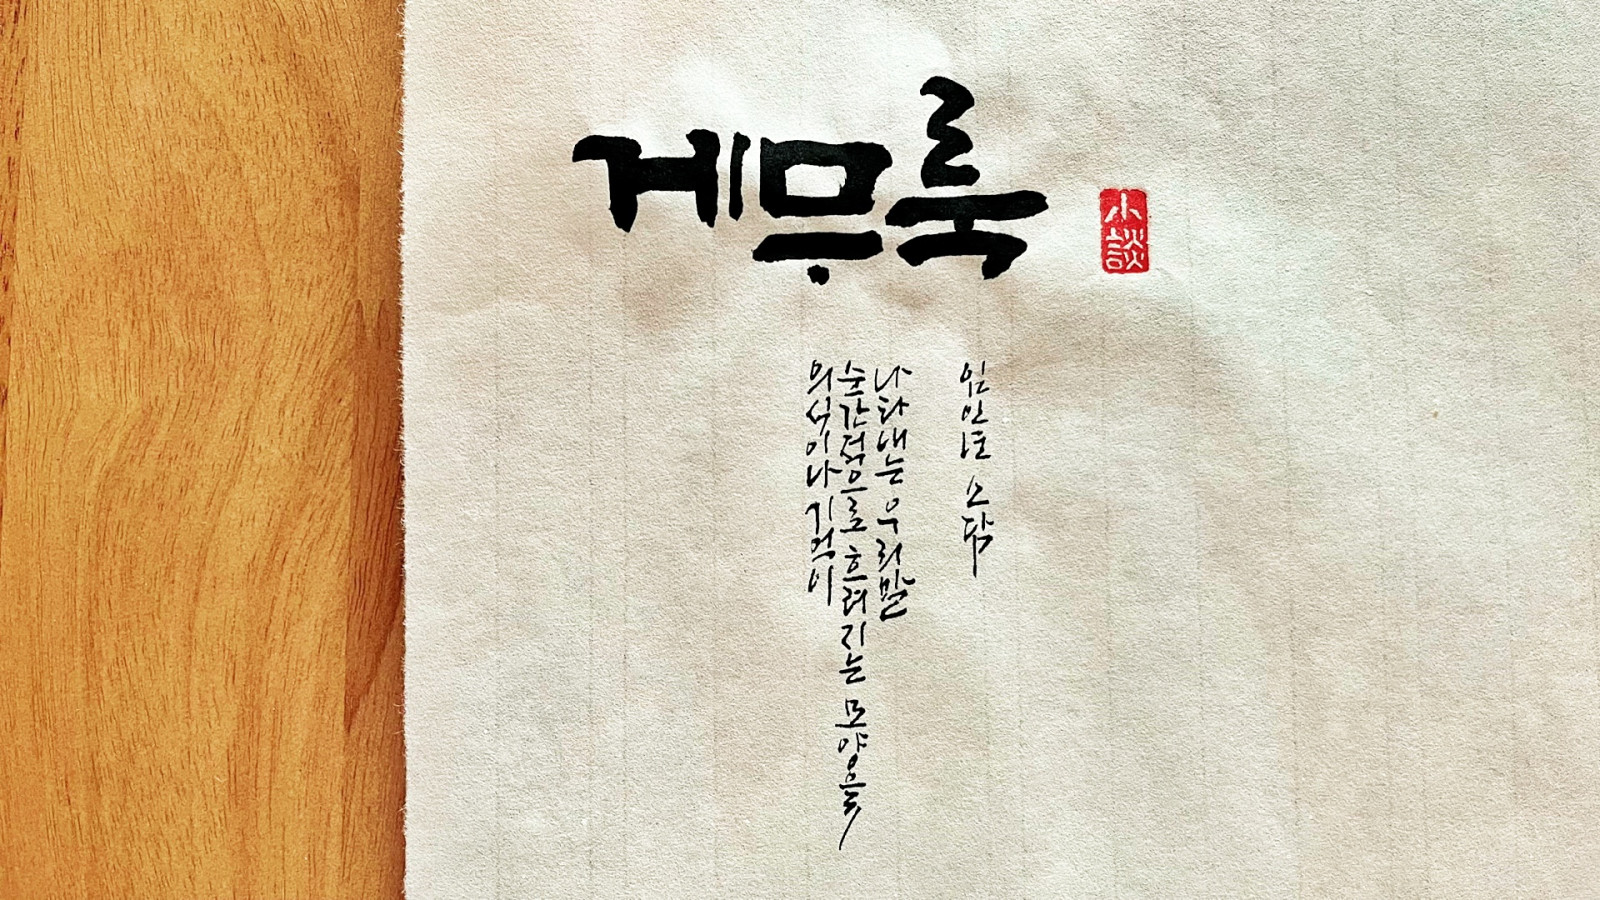 게무룩
小談
의식이나 기억이
순간적으로 흐려지는 모양을
나타내는 우리말
임인년 소담